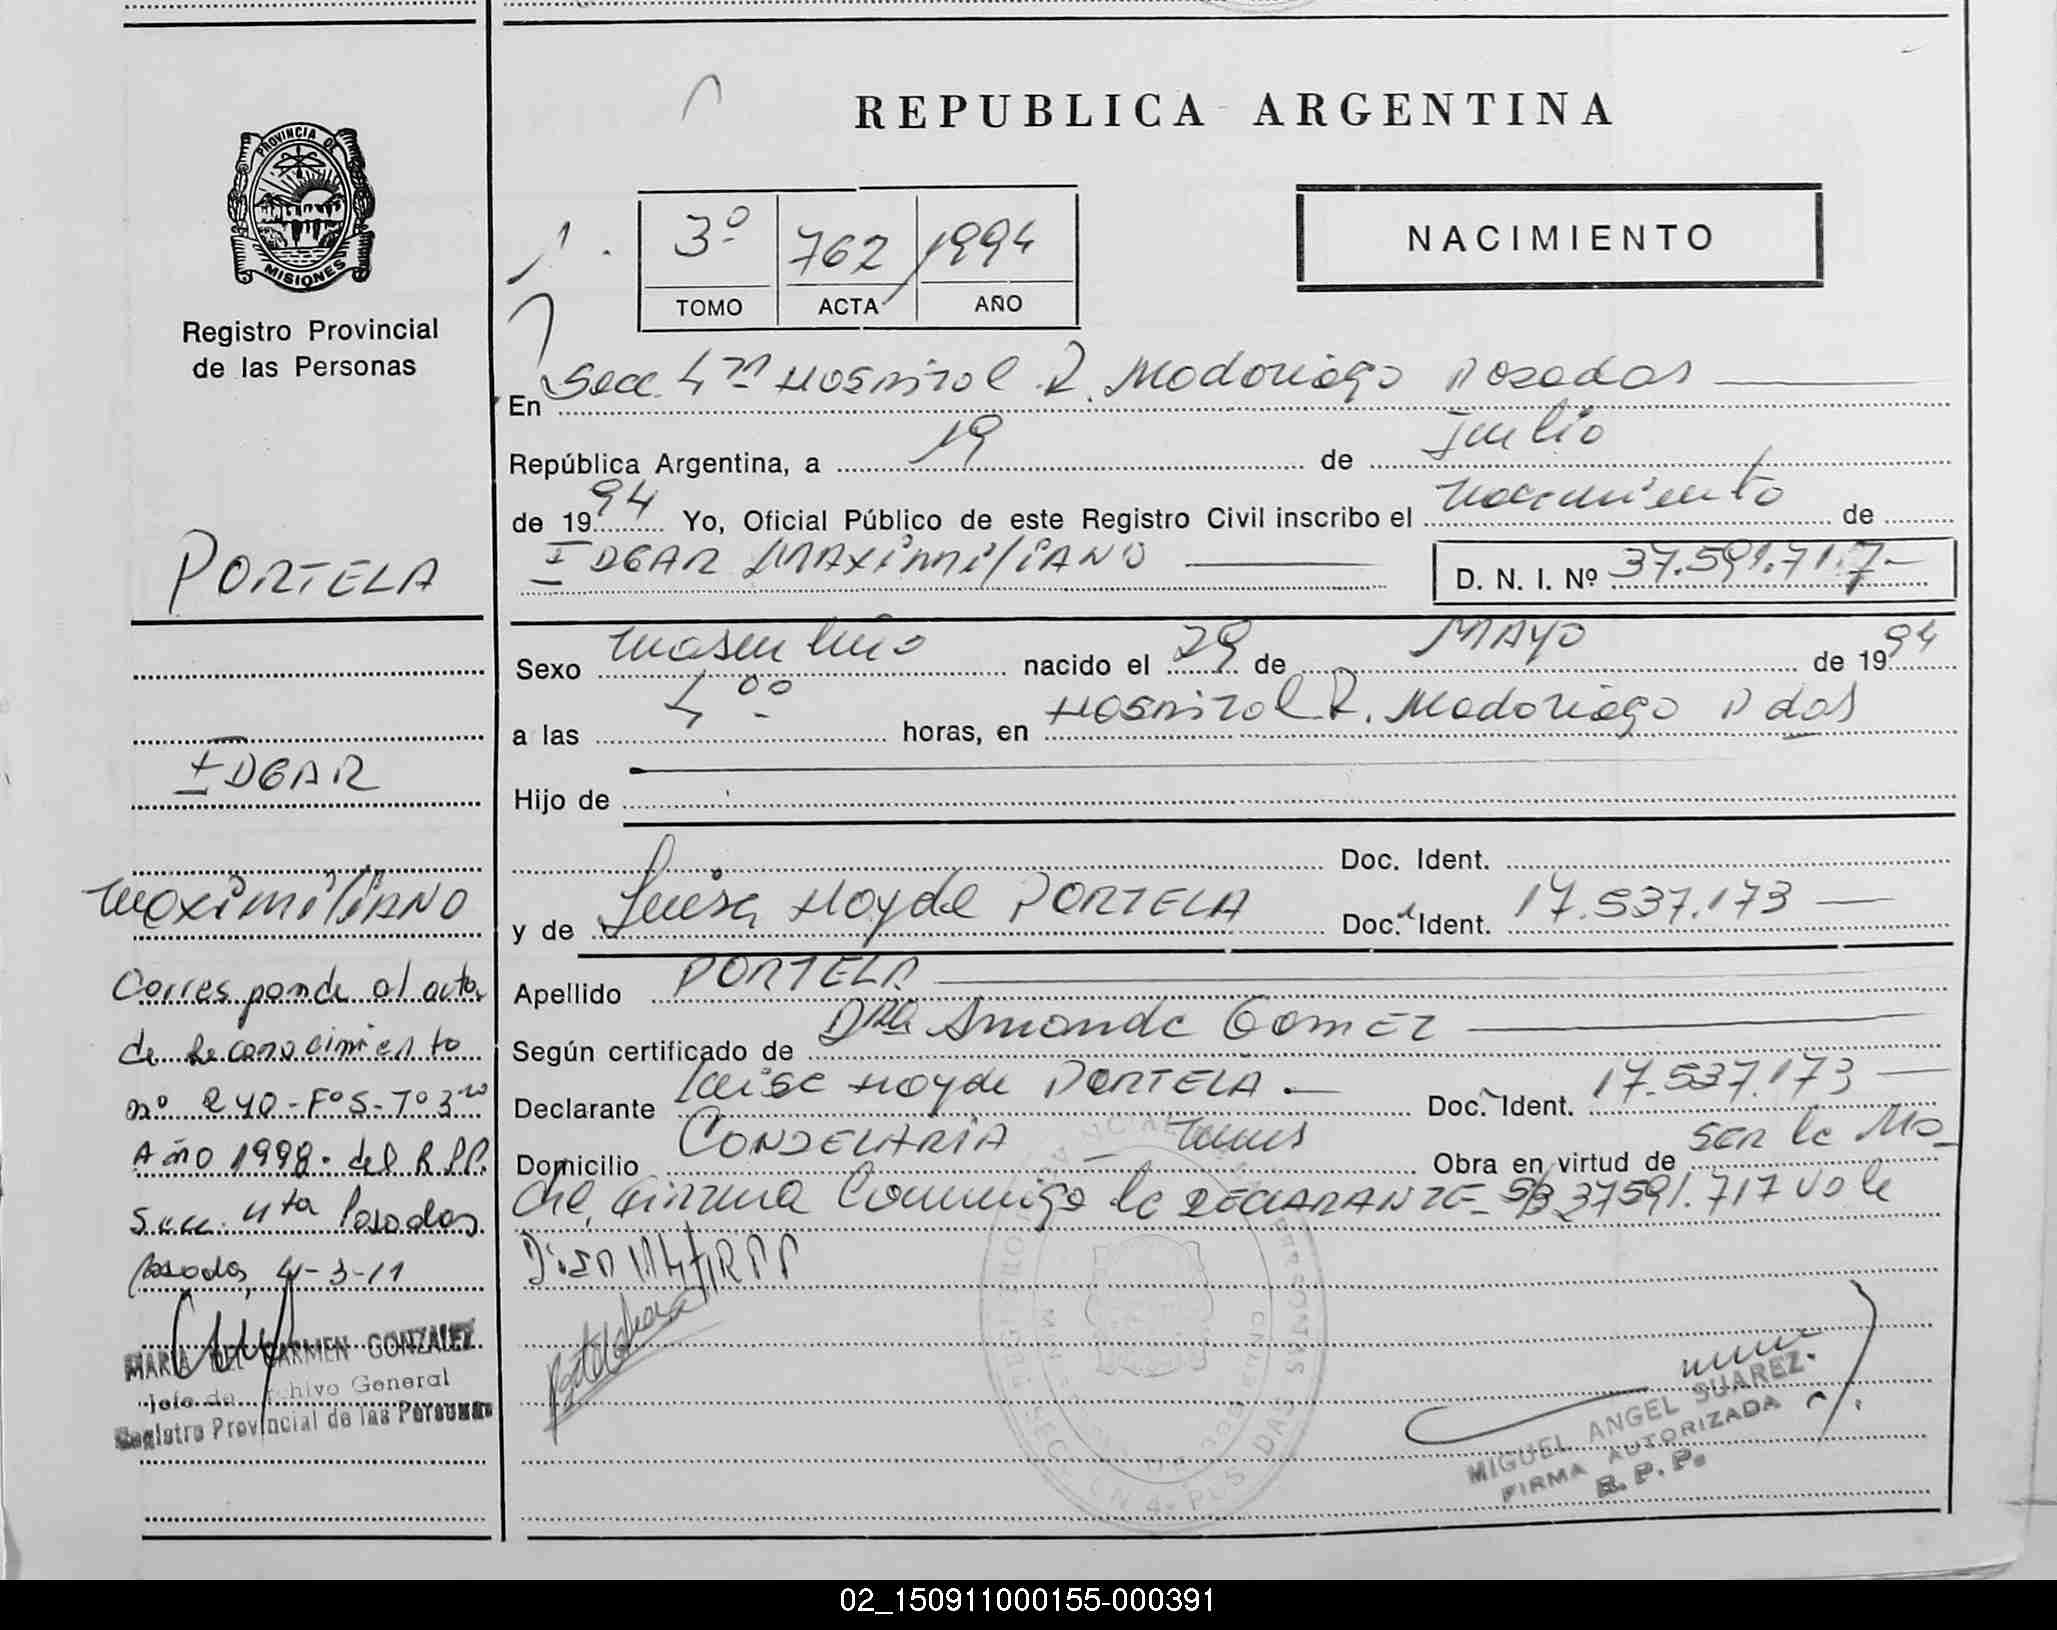 REPUBLICA ARGENTINA
PROVINCIA DE
MISIONES
Registro Provincial
de las Personas
3º 762 1994
TOMO ACTA AÑO
NACIMIENTO
En Secc. 4ta Hospital R. Madariaga Posadas
República Argentina, a 19 de Julio
de 1994 Yo, Oficial Público de este Registro Civil inscribo el nacimiento de
IDGAR MAXIMILIANO D. N. I. Nº 37.591.717
Sexo masculino nacido el 29 de MAYO de 1994
a las 4 00 horas, en Hospital R. Madariaga Pdas
Hijo de
Doc. Ident.
y de Luisa Hayde PORTELA Doc. Ident. 17.537.173
Apellido PORTELA
Según certificado de Dra Amanda Gomez
Declarante Luisa Hayde PORTELA.- Doc. Ident. 17.537.173
Domicilio CANDELARIA - Mnes Obra en virtud de ser la Ma-
dre, Firma Conmigo la DECLARANTE- S/B 37591.717 Vale
PORTELA
IDGAR
MAXIMILIANO
Corresponde al acta
de Reconocimiento
nº 240-Fº5-Tº3ro
Año 1998. del R.P.P.
Secc. 4ta Posadas
Posadas, 4-3-11
MARIA DEL CARMEN GONZALEZ
Jefe de Archivo General
Registro Provincial de las Personas
MIGUEL ANGEL SUAREZ.
FIRMA AUTORIZADA
R. P. P.
02_150911000155-000391